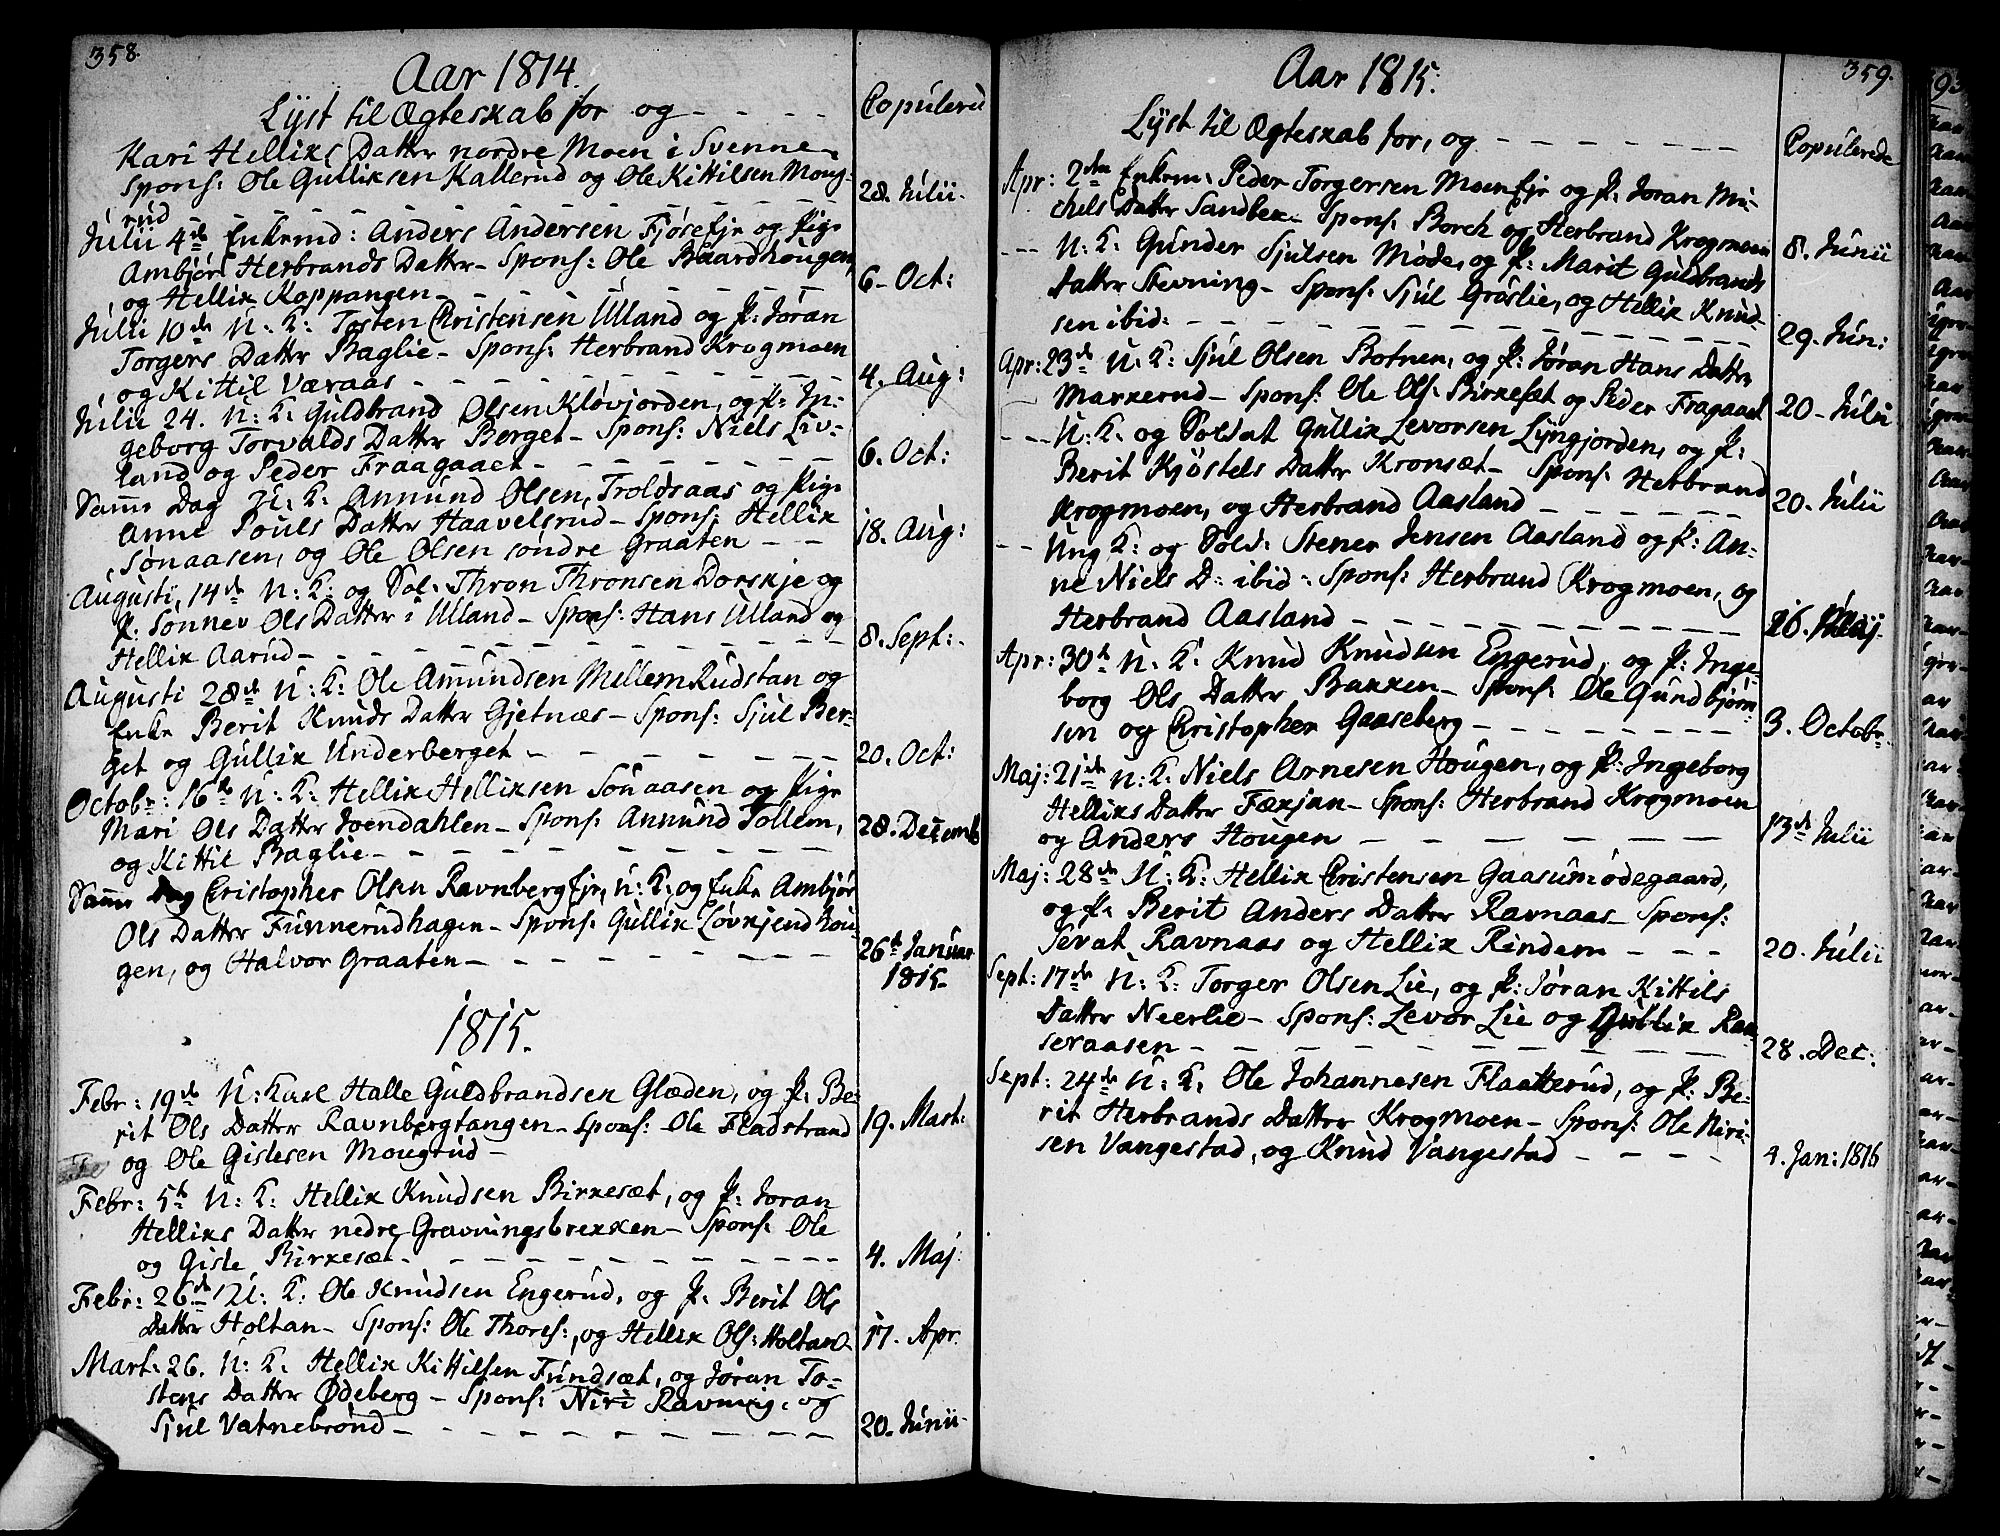 358.
Aar 1814.
Lyst til Ægteskab for og - - - -
Copulerd
Kari Helliks Datter nordre Moen i Svenne,
Spons: Ole Gulliksen Kallerud og Ole Kittilsen Moug-
rud - - - - - - - 28. Julii.
Julii 4de Enkemd: Anders Andersen Fjøsejr og Pige
Ambjør Herbrands Datter - Spons: Ole Baardhougen,
og Hellik Koppangen - - - - - - 6. Oct:
Julii 10de U. K: Tosten Christensen Ulland og P: Jøran
Torgers Datter Baglie - Spons: Herbrand Krogmoen
og Kittil Væraas - - - - - - 4. Aug:
Julii 24. U: K: Guldbrand Olsen Kløvjorden, og P: In-
geborg Torvalds Datter Berget - Spons: Niels Liv-
land og Peder Fraagaaet - - - - - 6. Oct:
Samme Dag U: K: Annund Olsen, Troldsaas og Pige
Anne Pouls Datter Haavelsrud - Spons, Hellik
Sønaasen, og Ole Olsen søndre Graaten - - 18. Aug:
Augusti, 14de U: K: og Sol: Thron Thronsen Dorskje og
P: Sønnev Ols Datter i Ulland - Spons: Hans Ulland og
Hellik Aarud - - - - - - 8. Sept:
Augusti 28de U: K: Ole Amundsen Mellem Rudstan og
Enke Berit Knuds Datter Gjetnæs - Spons: Sjul Ber-
get og Gullik Underberget - - - - - 20. Oct:
Octobr: 16de U: K: Hellik Helliksen Sønaasen og Pige
Mari Ols Datter Joendahlen - Spons: Annund Tollem,
og Kittil Baglie - - - - - - 28. Decemb
Samme Dag Christopher Olsen Ravnberg Ejr, U: K: og Enke Ambjør
Ols Datter Funnerudhagen - Spons: Gullik Løvkjend hou-
gen, og Halvor Graaten - - - - - 26de Januar
1815.
1815.
Febr: 19de U: Karl Halle Guldbrandsen Glæden, og P: Be-
rit Ols Datter Ravnbergtangen - Spons: Ole Fladstrand
og Ole Gislesen Mougrud - 19. Mart:
Febr: 5te U: K: Hellik Knudsen Birkesæt, og P: Joran
Helliks Datter nedre Gravningsbrekken - Spons: Ole
og Gisle Birkesæt - - - - - - 4. Maj:
Febr: 26de U: K: Ole Knudsen Engerud, og P: Berit Ols
Datter Holtan - Spons: Ole Thores:, og Hellik Ols: Holtan. 17. Apr.
Mart: 26. U: K: Hellik Kittilsen Fundsæt, og Jøran To-
stens Datter Ødeberg - Spons: Niri Ravning, og
Sjul Vatnebrønd - - - - - - 20. Junii.
359.
Aar 1815:
Lyst til Ægteskab for, og - - - - -
Copulerede
Apr: 2den Enkem: Peder Torgersen Moen Ejr og P: Joran Mi-
chels Datter Sandbek - Spons: Borch og Herbrand Krogmoen 8. Junii
- - U: K: Gunder Sjulsen Mode, og P: Marit Guldbrands
Datter Stevning - Spons: Sjul Grøslie, og Hellik Knud-
sen ibid: - - - - - - 29. Jun:
Apr: 23de U: K: Sjul Olsen Botnen, og P: Jøran Hans Datter
Markerud - Spons: Ole Ols: Birkesæt og Peder Fragaaet 20. Julii
- - U: K: og Soldat Gullik Levorsen Lyngjorden, og P:
Berit Kjøstels Datter Kronsæt - Spons: Herbrand
Krogmoen, og Herbrand Aasland - - - 20. Julii
- - Ung K: og Sold: Stener Jensen Aasland og P: An-
ne Niels D: ibid: Spons: Herbrand Krogmoen, og
Herbrand Aasland - - - - - 26. Maj.
Apr: 30te U: K: Knud Knudsen Engerud, og P: Inge-
borg Ols Datter Bakken - Spons: Ole Gundbjørn-
sen og Christopher Gaaseberg - - - - 3. Octobr.
Maj: 21de U: K: Niels Arnesen Hougen, og P: Ingeborg
Helliks Datter Fækjan - Spons: Herbrand Krogmoen
og Anders Hougen - - - - 13de Julii
Maj: 28de U: K: Hellik Christensen Gaasumødegaard,
og P: Berit Anders Datter Ravnaas - Spons:
Sevat Ravnaas og Hellik Rindem - - - 20. Julii
Sept: 17de U: K: Torger Olsen Lie, og P: Jøran Kittils
Datter Neerlie - Spons: Levor Lie og Gullik Raa-
seraasen - - - - - 28. Dec:
Sept: 24de U: K: Ole Johannesen Flaatterud, og P: Be-
rit Herbrands Datter Krogmoen - Spons: Ole Niri-
sen Vangestad, og Knud Vangestad - - - - 4. Jan: 1816